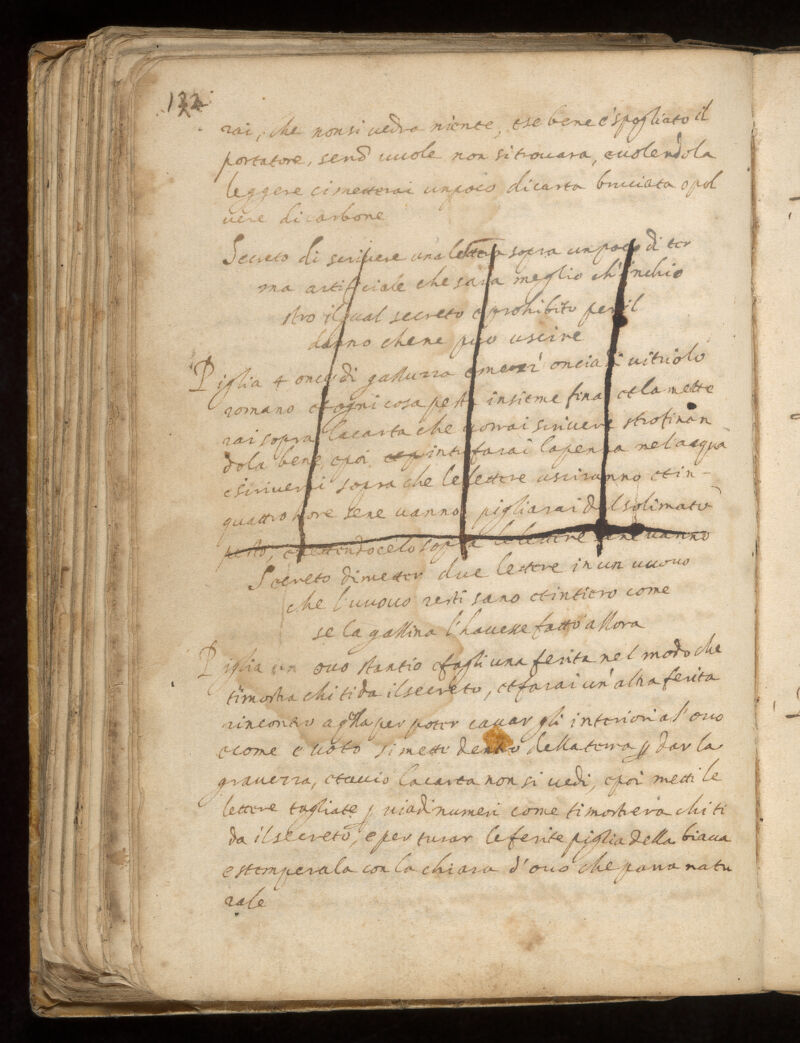 122
rai, che non si uedra niente, e se bene è spogliato il
portatore, send uuole non si trouara, e uolendola
leggere ci metterai un poco di carta bruciata o pol
uere di carbone
Secreto di scriuere una lettera sopra un poco di ter
ma artificiale che sara meglio ch'inchio
stro il qual secreto e prohibito per il
danno che ne puo uscire
Piglia 4 oncie di galluzza e mezzi oncia di uitriolo
romano et ogni cosa pesta insieme fina et la mette
rai sopra la carta che uorrai scriuere strofinan
dola bene, e poi intinfarai la penna nel acqua
e scriuerai sopra che le lettere usciranno et in
quattro hore sene uanno, pigliarai del solimato
pesto, e mettendocelo sopra le lettere sene uanno
Secreto di metter due lettere in un uuouo
che l'uuouo resti sano et intiero come
se la gallina l'hauesse fatto allora
Piglia un ouo stantio e fagli una ferita nel modo che
ti mostra chi ti da il secreto, et farai un'altra ferita
rincontro a qlla per poter cauar gli interiori al ouo
e come e uoto si mette dentro della terra p dar la
grauezza, et auio la carta non si uedi, e poi metti le
lettere tagliate p uia di numeri come ti mostrera chi ti
da il secreto, e per turar le ferite piglia della biaca
e stemperala con la chiara d'ouo che parra natu
rale